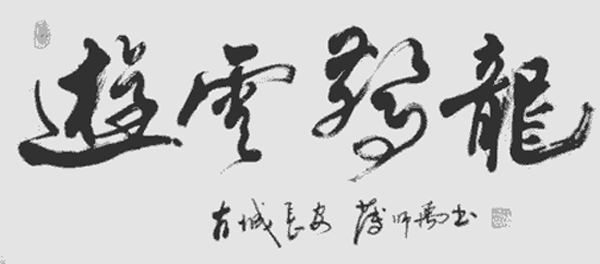 遊雲驚龍
古城長安 师书